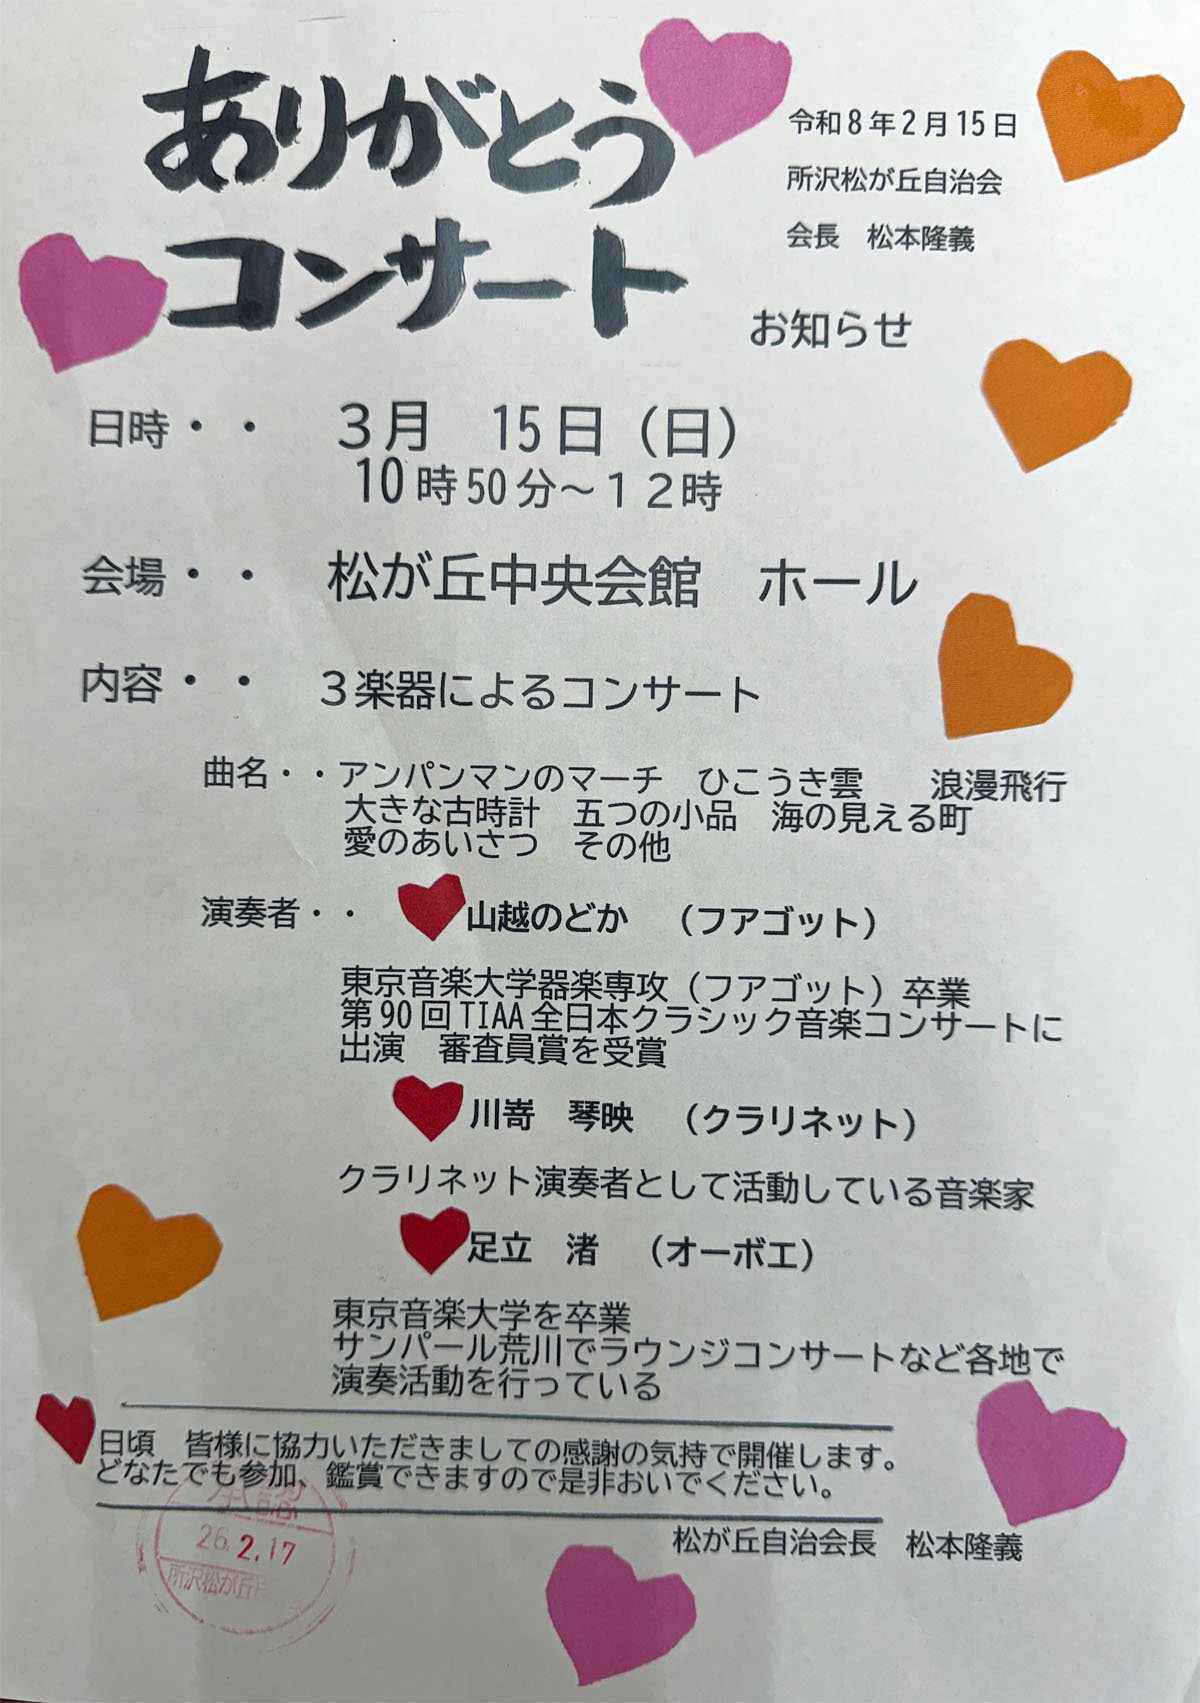 ありがとう
コンサート
令和8年2月15日
所沢松が丘自治会
会長　松本隆義
お知らせ
日時・・　３月　15日（日）
10時50分～１２時
会場・・　松が丘中央会館　ホール
内容・・　３楽器によるコンサート
曲名・・アンパンマンのマーチ　ひこうき雲　　浪漫飛行
大きな古時計　五つの小品　海の見える町
愛のあいさつ　その他
演奏者・・　山越のどか　（フアゴット）
東京音楽大学器楽専攻（フアゴット）卒業
第90回TIAA全日本クラシック音楽コンサートに
出演　審査員賞を受賞
川嵜　琴映　（クラリネット）
クラリネット演奏者として活動している音楽家
足立　渚　（オーボエ）
東京音楽大学を卒業
サンパール荒川でラウンジコンサートなど各地で
演奏活動を行っている
日頃　皆様に協力いただきましての感謝の気持で開催します。
どなたでも参加、鑑賞できますので是非おいでください。
松が丘自治会長　松本隆義
承認
26.2.17
所沢松が丘自